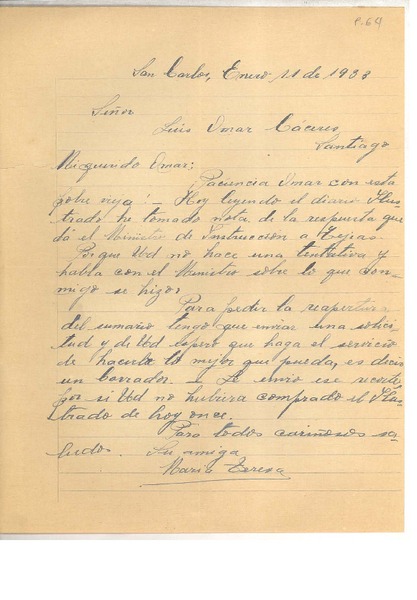 P. 64
San Carlos, Enero 11 de 1933
Señor
Luis Omar Cáceres
Santiago
Mi querido Omar:
¡Paciencia Omar con esta
pobre vieja! - Hoy leyendo el diario Ilus-
trado he tomado nota de la respuesta que
dá el Ministro de Instrucción a Lejias.
Porque Ud no hace una tentativa y
habla con el Ministro sobre lo que con-
migo se hizo?
Para pedir la reapertura
del sumario tengo que enviar una solici-
tud y de Ud espero que haga el servicio
de hacerla lo mejor que pueda, es decir
un borrador. - Le envío ese recorte
por si Ud no hubiera comprado el Ilus-
trado de hoy once.
Para todos cariñosos sa-
ludos. Su amiga
María Teresa